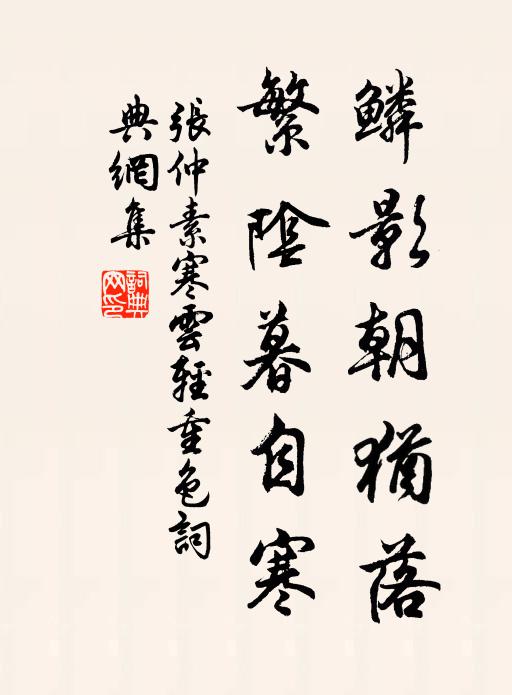 鱗影朝猶落
繁陰暮自寒
張仲素寒雲輕重色詞
典網集
詞典網印